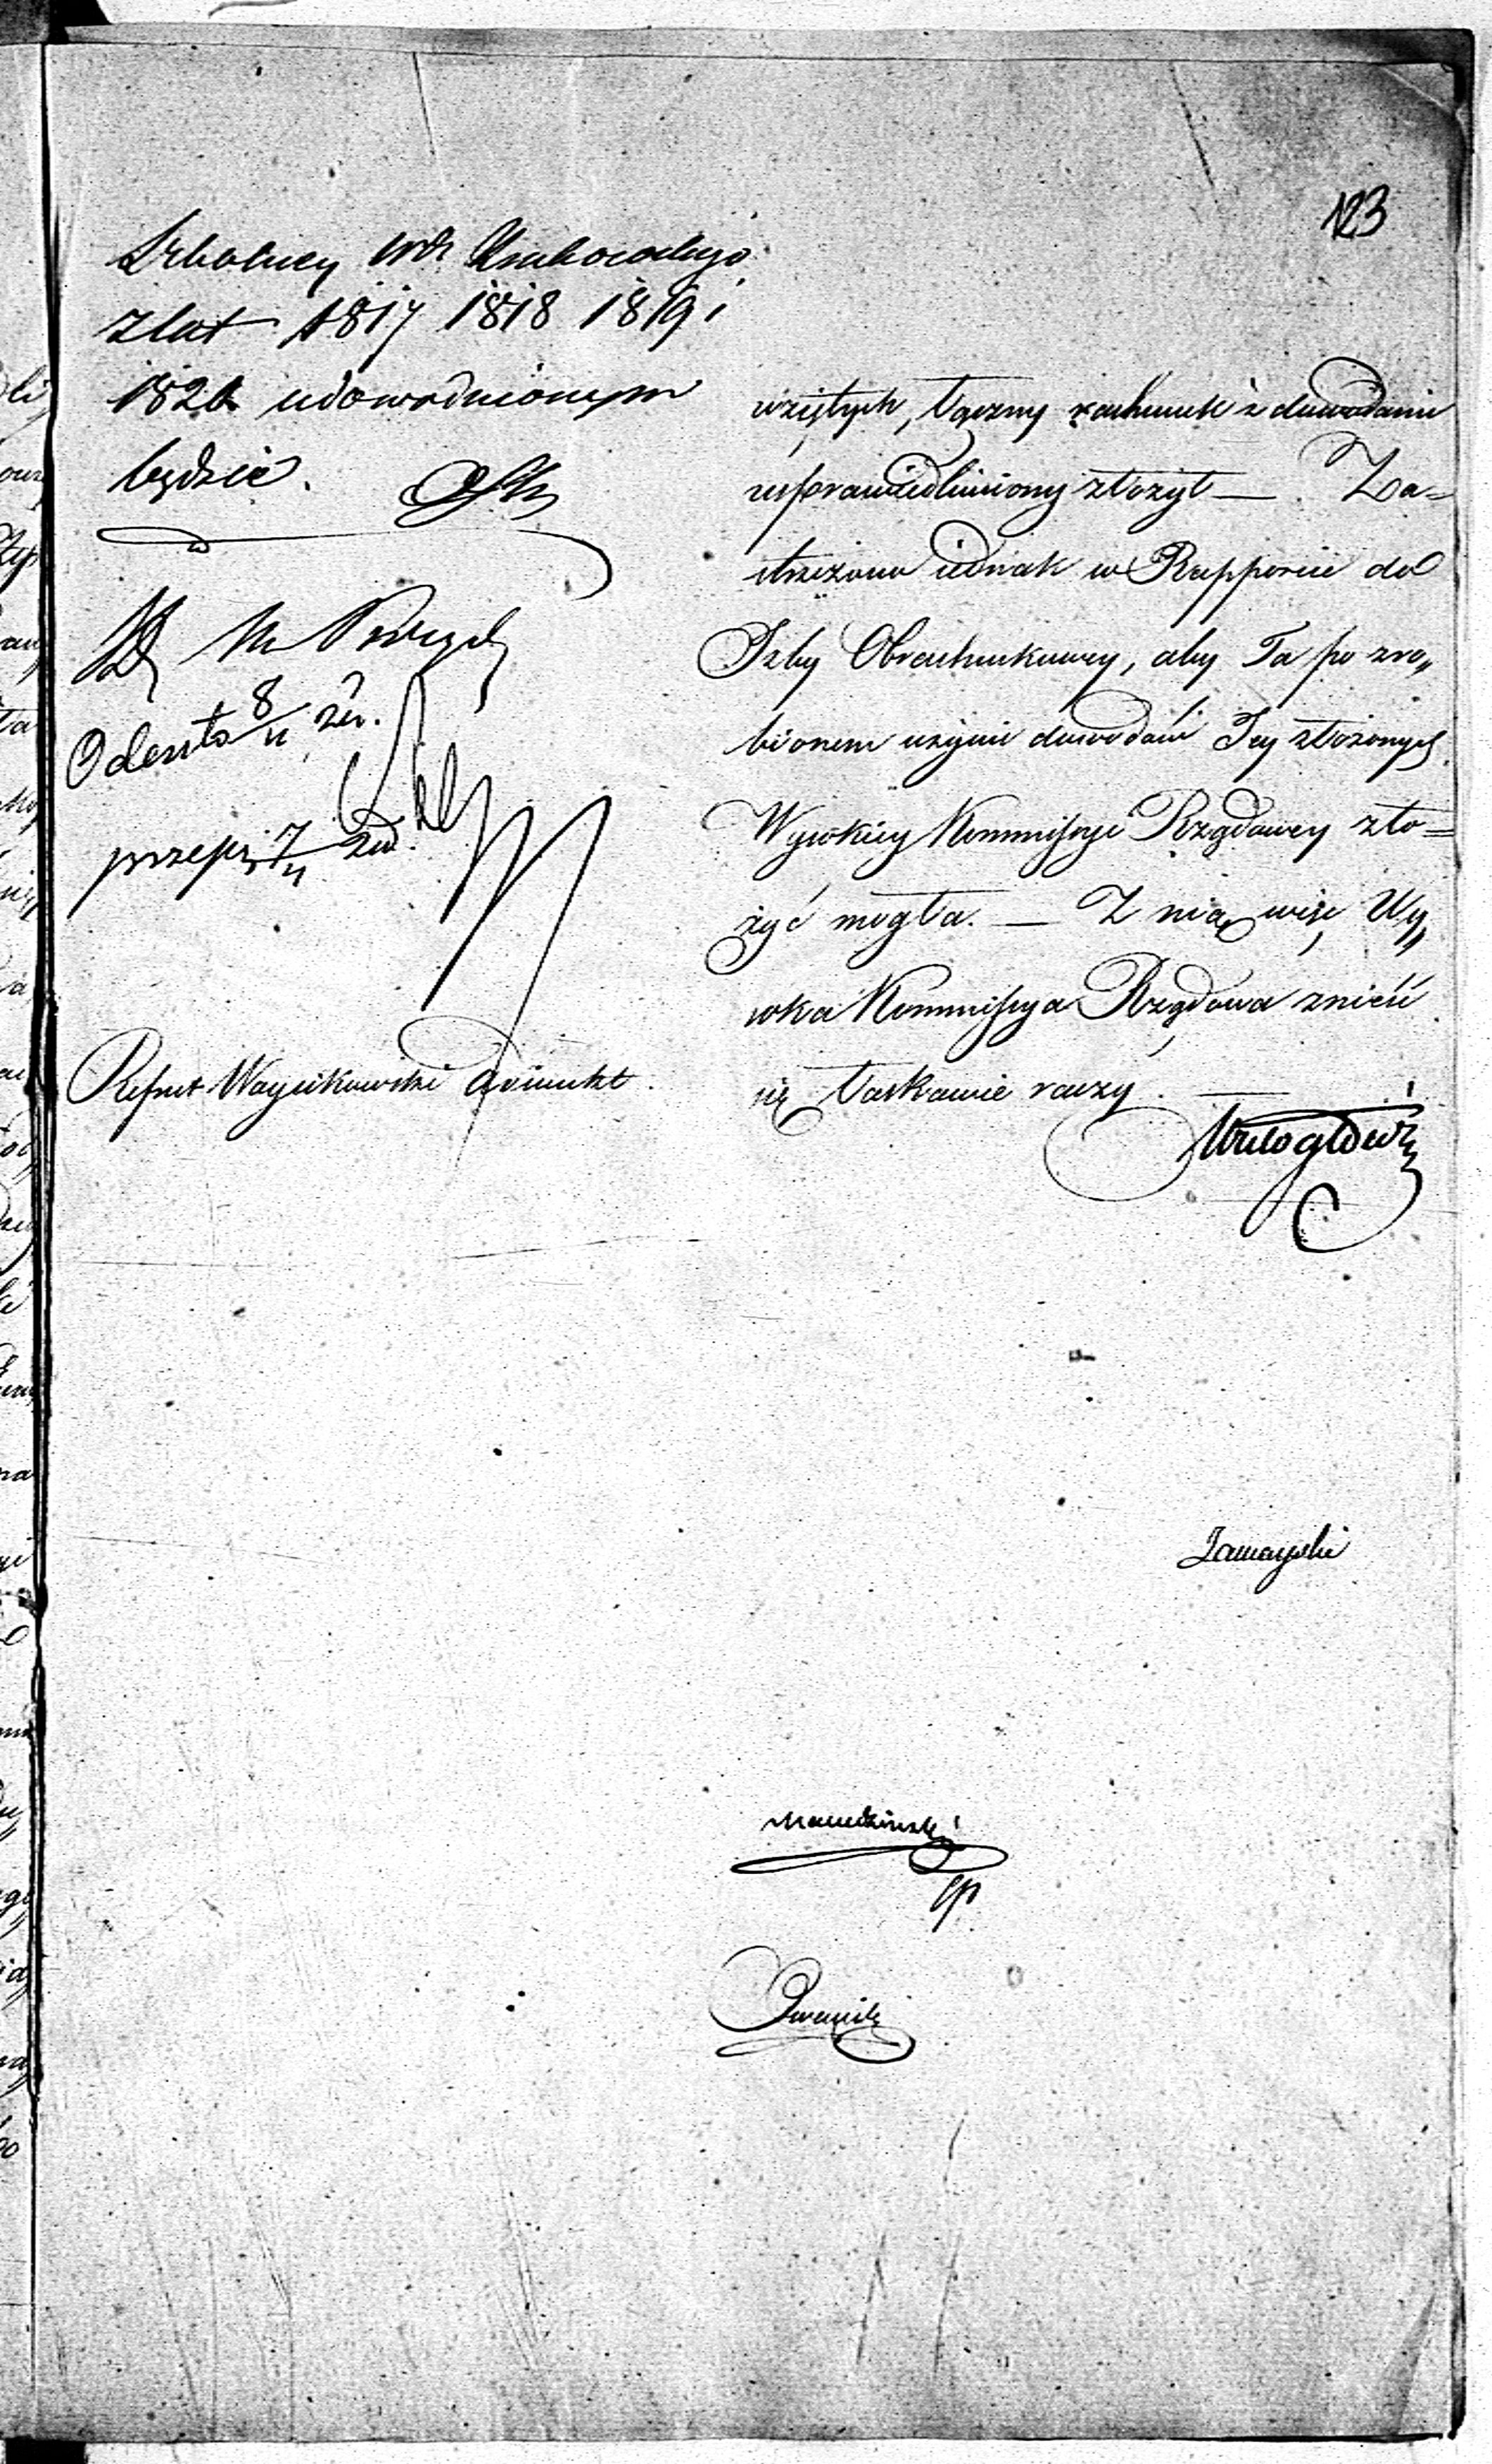 123
Szkolney Wdz Krakowskiego
z lat 1817 1818 1819 i
1820 udowodnionym
będzie.
Odeszło 8/11 20.
przepis 7/11
Refnet Woycikowski Adiunkt.
wziętych, łączny rachunek z dowodami
usprawiedliwiony złożył — . Za=
strzeżono iednak w Rapporcie do
Izby Obrachunkowey, aby Ta po zro„
bionem użyciu dowodów Jey złożonych
Wysokiey Kommissyi Rządowey zło=
żyć mogła. — Z nią więc Wy„
soka Kommissya Rządowa znieść
się łaskawie raczy. —
Wielogłowski
Zamoyski